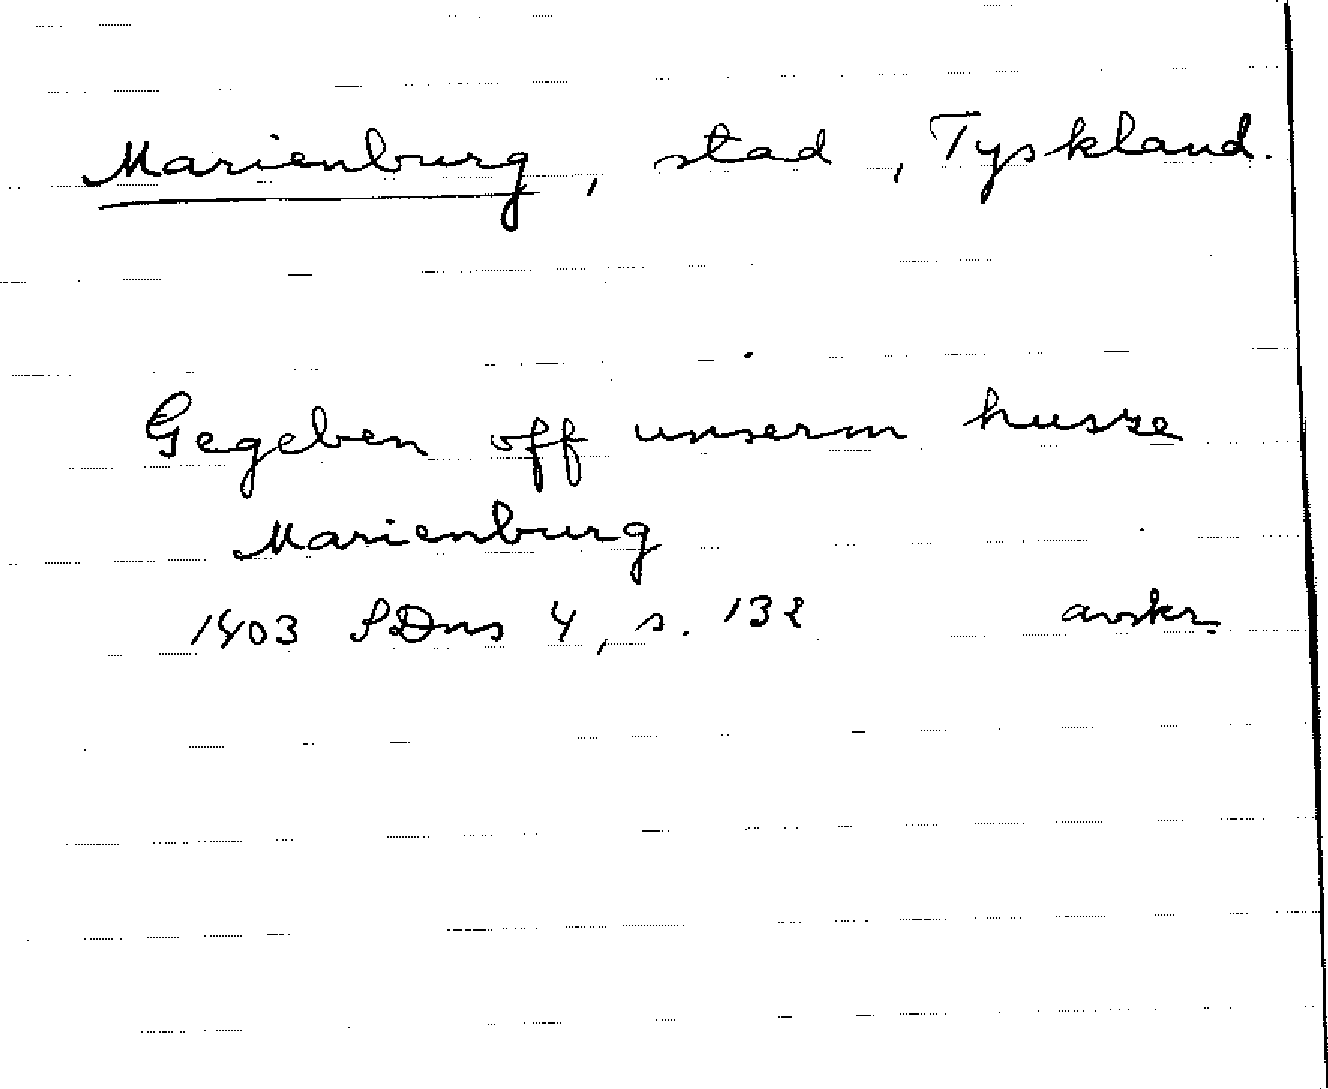 Marienburg, stad, Tyskland.
Gegeben off unserm husze
Marienburg
1403 SDns 4, s. 132 avskr.